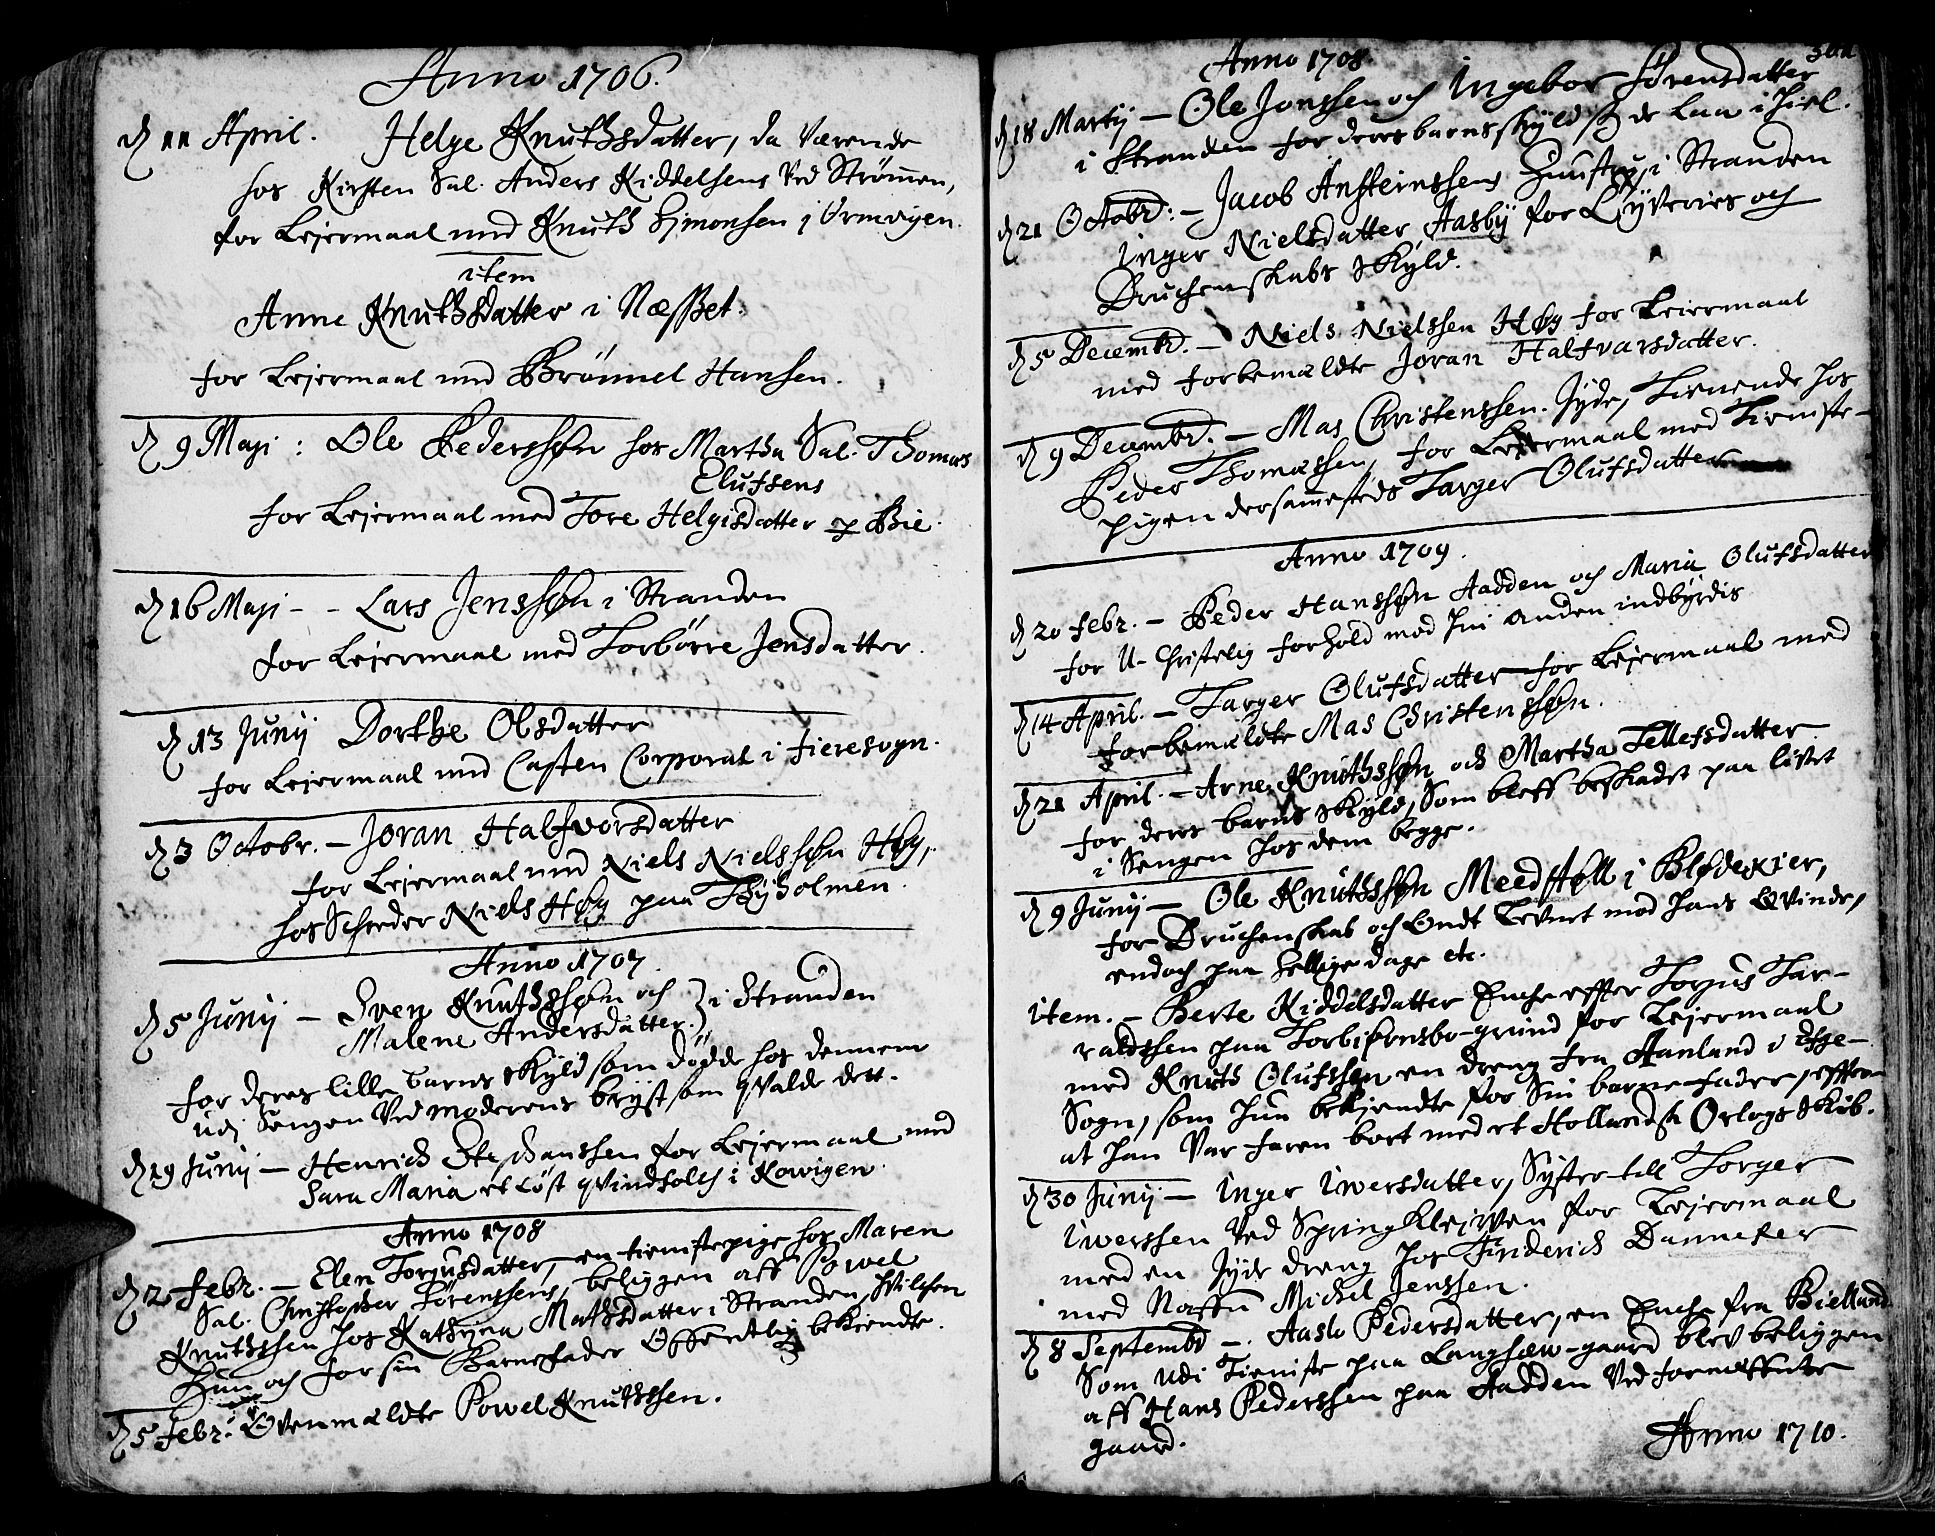 Anno 1706.
D 11 April. Helge Knuthsdatter, da Værende
hos Kirsten Sal. Anders Kiddelsens Ved Strømen,
for Lejermaal med Knuth Simonsen i Urmvigen.
item
Anne Knuthsdatter i Næsset.
for Lejermaal med Brønnel Hansen.
D 9 Maji : Ole Pederssøn hos Martha Sal. Thomas
Elufsens
for Lejermaal med Tore Helgisdatter p Bie.
D 16 Maji - - Lars Jenssøn i Stranden
for Lejermaal med Torbørre Jensdatter.
D 13 Junij Dorthe Olsdatter
for Lejermaal med Casten Corporal i Fieresogn.
D 3 Octobr. - Joran Halfvorsdatter
for Lejermaal med Niels Nielssøn Høy,
hos Schreder Niels Høy paa Thyholmen.
Anno 1707.
D 5 Junij - Sven Knuthssøn och } i Stranden
Malene Andersdatter.
for deres lille barns skyld som døde hos dennem
udj Sengen Ved moderens bryst som qvalde dett.
D 29 Junij - Henrich Stephanssen for Lejermaal med
Sara Maria et løst qvindfolch i Kowigen.
Anno 1708
D 2 Febr. - Elen Torjusdatter, en tienistepige hos Maren
Sal. Christopher Sørenssens, beliggen aff Powel
Knuthssen hos Kathrina Mathsdatter i Stranden, hvilchen
Hun och for sin Barnefader Offentlig bekiendte.
D 5 Febr. Ovenmældte Powel Knuthssen.
Anno 1708.
D 18 Martij - Ole Jonssen och Ingebor Sørensdatter
i Stranden for deres barns skyld de laa i hiel.
D 21 Octobr: - Jacob Ansteinssens Huustru i Stranden
Inger Nielsdatter Aasby for Tyveries och
Druchenskabs skyld.
D 5 Decembr. - Niels Nielssen Høy for Lejermaal
med forbemældte Joran Halfvarsdatter.
D 9 Decembr. - Mas Christenssen. Jyde, Tienende hos
Peder Thomassen, for Lejermaal med Tieniste-
pigen dersammesteds Targer Olufsdatter
Anno 1709.
D 20 Febr. - Peder Hanssøn Aadden och Maria Olufsdatter
for U-Christelig forhold mod hin anden indbyrdis
D 14 April. - Targer Olufsdatter for Lejermaal med
forbemældte Mas Christenssøn.
D 21 April. - Arne Knuthssøn och Martha Tellefsdatter
for deres barns skyld, som bleff beskadet paa livet
i Sengen hos dem begge.
D 9 Junij - Ole Knuthssøn Meedstøll i Blødekier,
for Druchenskab och Ondt Levnet mod hans Qvinde,
endoch paa Hellige dage etc.
Item. - Berte Kiddelsdatter Enche effter Torjus Tar-
raldssen paa Torbiørnsbo-grund for Lejermaal
med Knuth Olufssøn en dreng fra Aanland i
Sogn, som hun bekjendte for Sin barne-fader, effter
at han var faren bort med et Hollandsk Orlogs Skib.
D 30 Junij - Inger Iwersdatter, Syster till Torger
Iwerssen Ved Springklejven for Lejermaal
med en Jyde dreng hos Finderich Danneker
med Naffn Michel Jenssen.
D 8 Septembr -. Aaslo Pedersdatter, en Enche fra Bielland
Som udi Tieniste paa Langsæw-gaard blev beliggen
aff Hans Pederssen paa Aadden Ved
gaard.
Anno 1710.